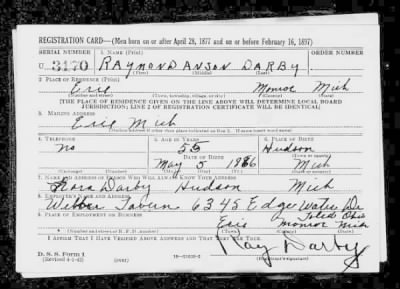 REGISTRATION CARD—(Men born on or after April 28, 1877 and on or before February 16, 1897)
SERIAL NUMBER 1. NAME (Print) ORDER NUMBER
U 3170 RAYMOND ANSON DARBY
(First) (Middle) (Last)
2. PLACE OF RESIDENCE (Print)
Erie Monroe Mich
(Number and street) (Town, township, village, or city) (County) (State)
[THE PLACE OF RESIDENCE GIVEN ON THE LINE ABOVE WILL DETERMINE LOCAL BOARD
JURISDICTION; LINE 2 OF REGISTRATION CERTIFICATE WILL BE IDENTICAL]
3. MAILING ADDRESS
Erie Mich
[Mailing address if other than place indicated on line 2. If same insert word same]
4. TELEPHONE 5. AGE IN YEARS 6. PLACE OF BIRTH
No 55 Hudson
DATE OF BIRTH (Town or county)
May 5 1886 Mich
(Mo.) (Day) (Yr.) (State or country)
7. NAME AND ADDRESS OF PERSON WHO WILL ALWAYS KNOW YOUR ADDRESS
Flora Darby Hudson Mich
8. EMPLOYER'S NAME AND ADDRESS
Weber Tavern 6345 Edge Water Dr
Toledo Ohio
9. PLACE OF EMPLOYMENT OR BUSINESS
Erie Monroe Mich
(Number and street or R. F. D. number) (Town) (County) (State)
I AFFIRM THAT I HAVE VERIFIED ABOVE ANSWERS AND THAT THEY ARE TRUE.
D. S. S. Form 1
(Revised 4-1-42) (over)
Ray Darby